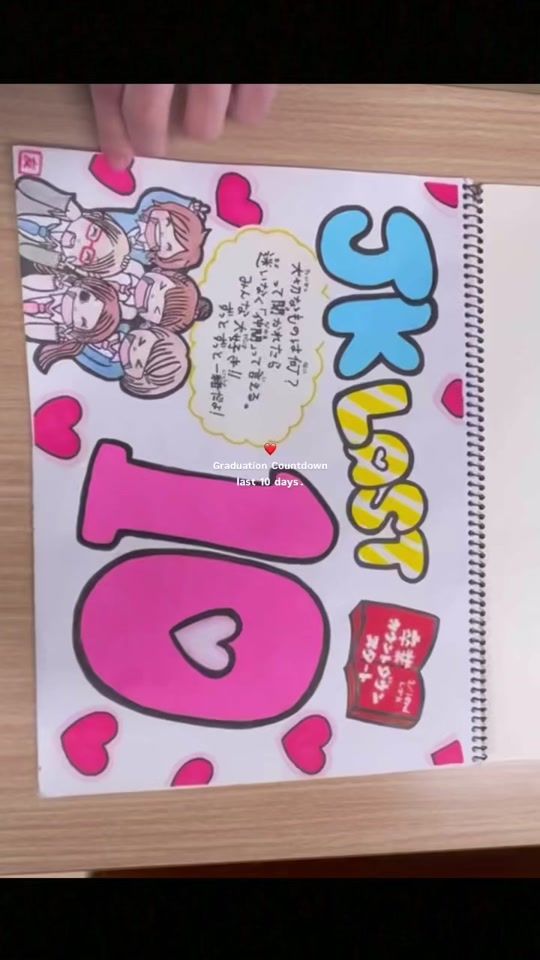 JK LAST
卒業
カウントダウン
スタート
大切なものは何？
って聞かれたら
迷いなく「仲間」って言える。
みんな大好き!!
ずっとずっと一緒だよ!
10
Graduation Countdown
last 10 days.